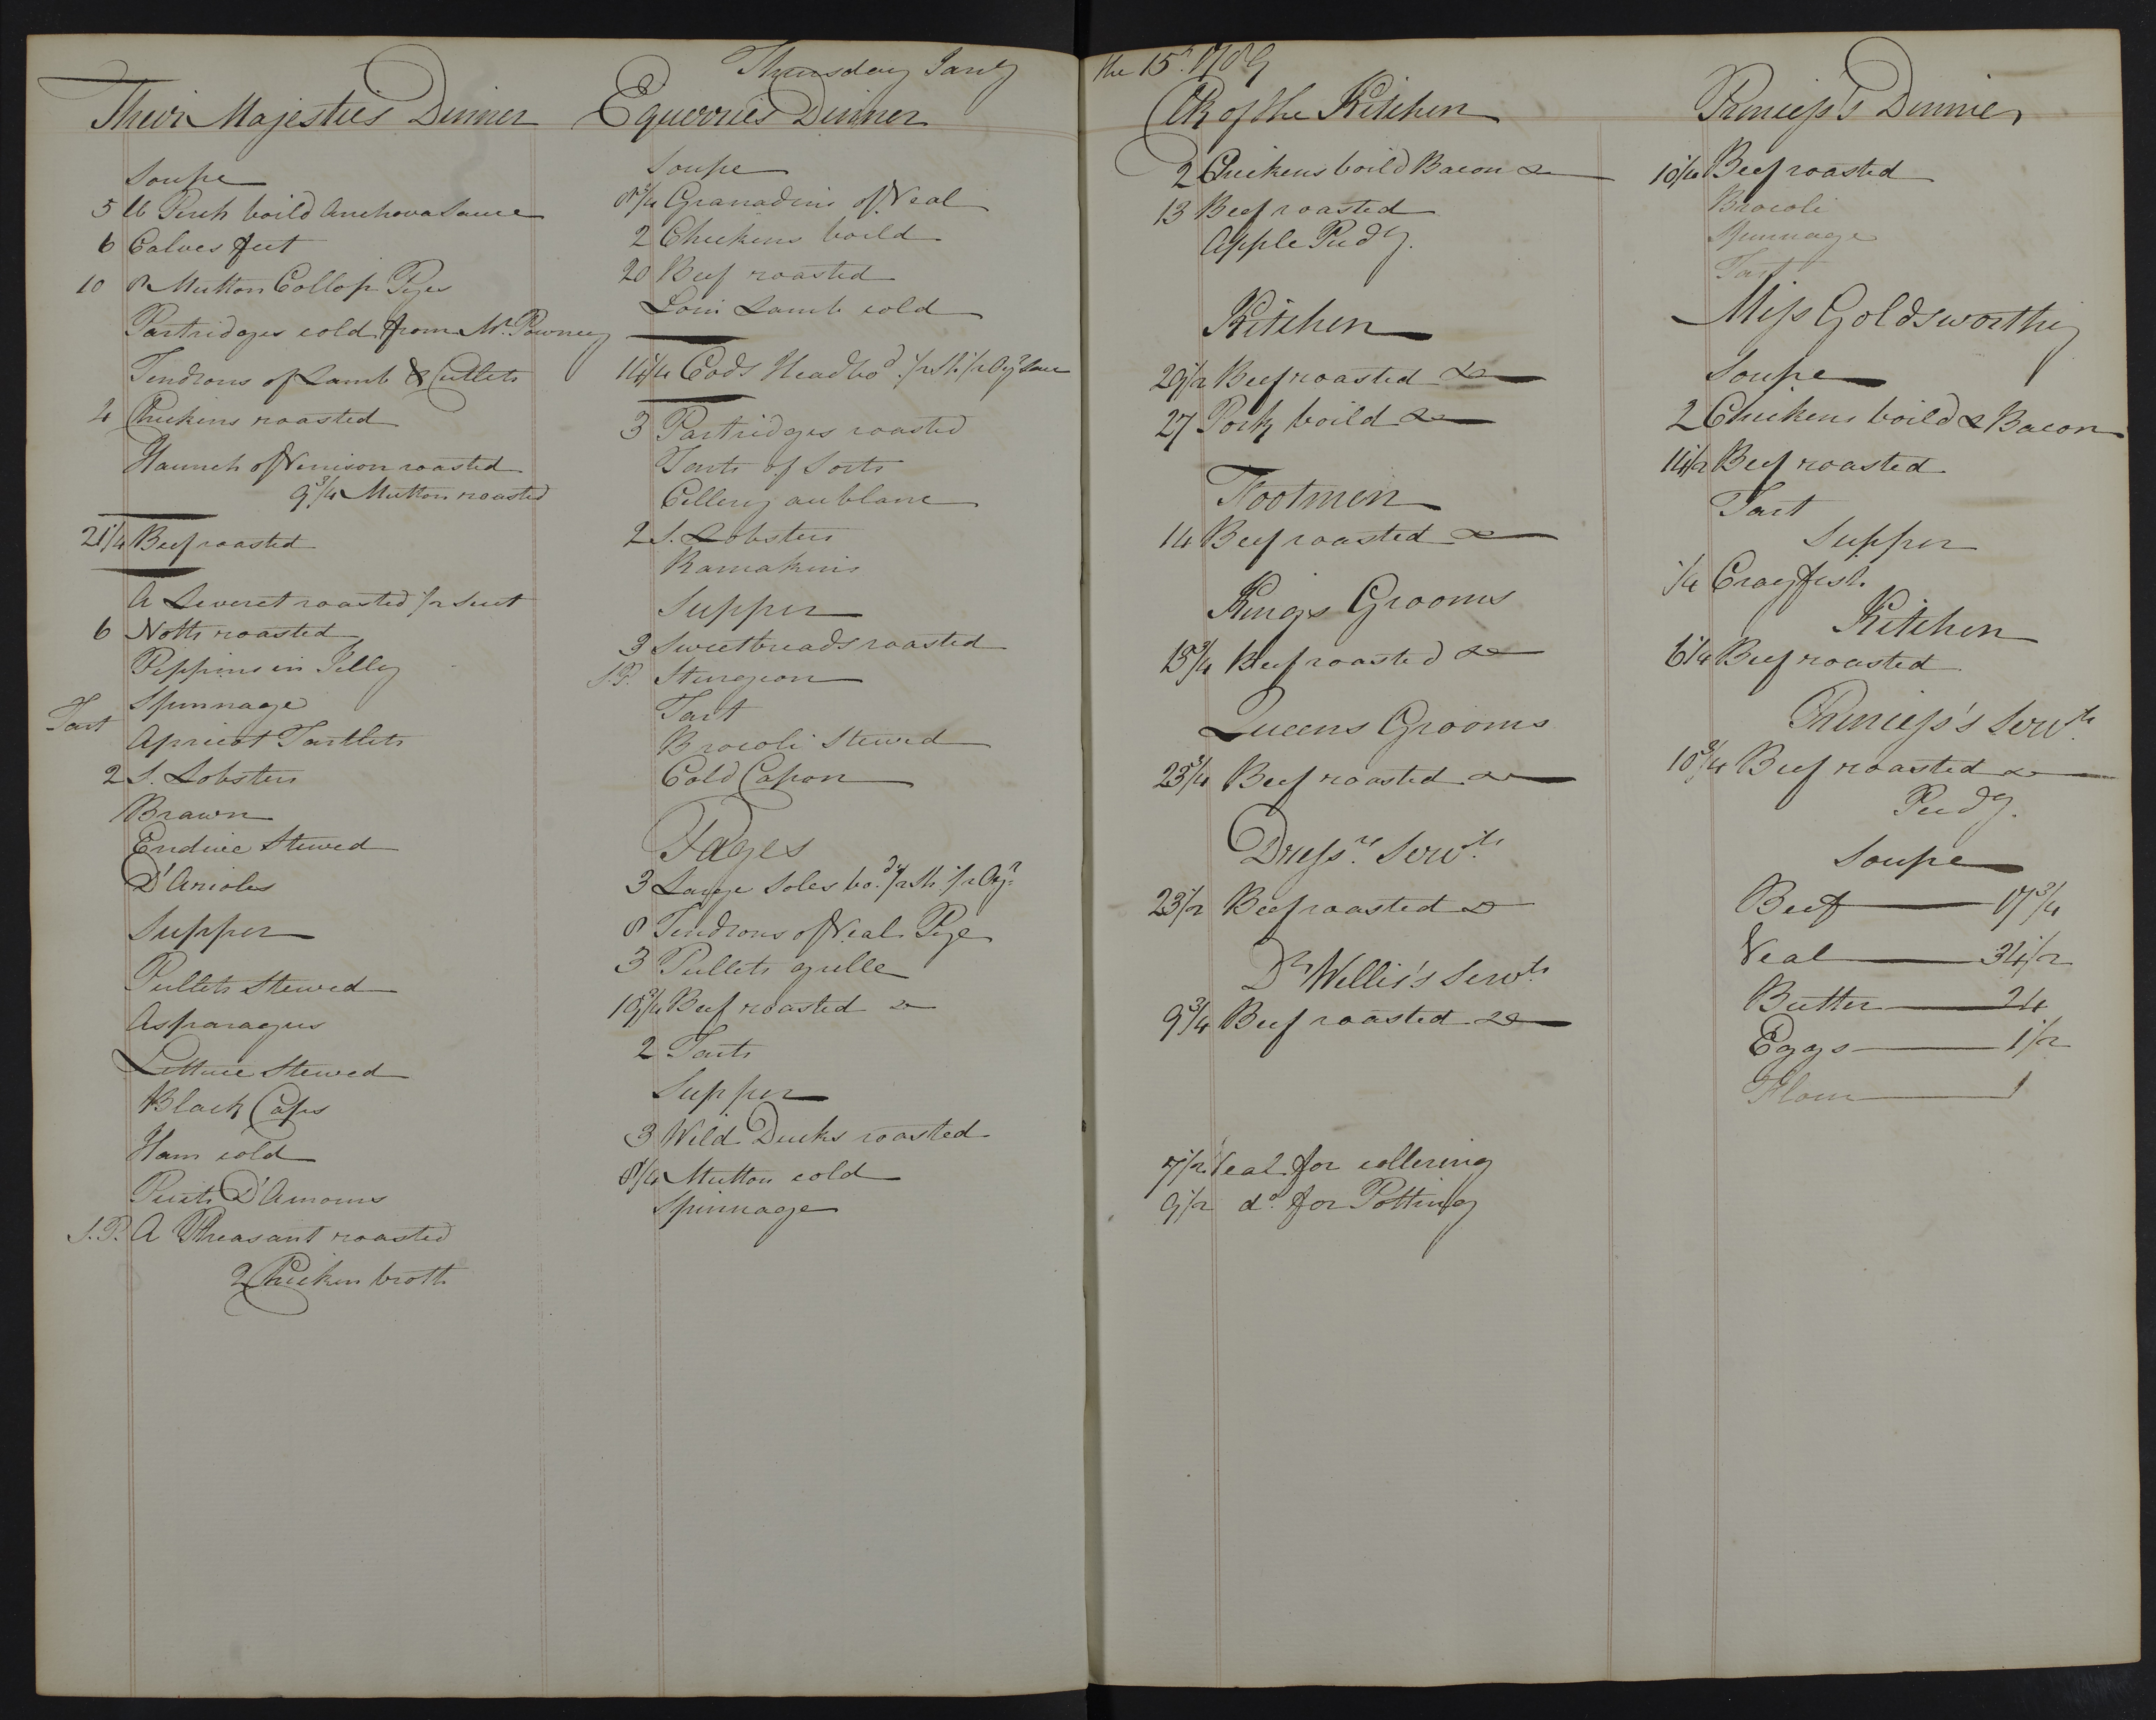 Thursday Janry the 15th 1789
Their Majesties Dinner
Soupe
5 lb Perch boild Anchova Sauce
6 Calves feet
10 8 Mutton Collop Pyes
Partridges cold from Mr. Powney
Tendrons of Lamb & Cutlets
4 Chickens roasted
Haunch of Venison roasted
9 3/4 Mutton roasted
21 1/4 Beef roasted
A Leveret roasted 1/2 Suet
6 Notts roasted
Pippins in Jelly
Spinnage
Tart
Apricot Tartlets
2 S. Lobsters
Brawn
Endive Stewed
D'Arioles
Supper
Pullets Stewed
Asparagus
Lettuce Stewed
Black Caps
Ham cold
Puits D'Amours
S.P. A Pheasant roasted
2 Chicken broth
Equerries Dinner
Soupe
8 3/4 Granadins of Veal
2 Chickens boild
20 Beef roasted
Loin Lamb cold
14 1/4 Cods Head bod. 1/2 Sh. 1/2 Oyr Sauce
3 Partridges roasted
Tarts of Sorts
Cellery au blanc
2 S. Lobsters
Ramakins
Supper
3 Sweetbreads roasted
S.P. Sturgeon
Tart
Brocoli Stewed
Cold Capon
Pages
3 Large Soles bod. 1/2 Sh. 1/2 Oyr.
8 Tendrons of Veal Pye
3 Pullets grille
19 3/4 Beef roasted &
2 Tarts
Supper
3 Wild Ducks roasted
8 1/4 Mutton cold
Spinnage
Clk of the Kitchen
2 Chickens boild Bacon &
13 Beef roasted
Apple Pudg.
Kitchen
29 1/2 Beef roasted &
27 Pork boild &
Footmen
14 Beef roasted &
Kings Grooms
18 3/4 Beef roasted &
Queens Grooms
23 3/4 Beef roasted &
Dressrs. Servts.
23 1/2 Beef roasted &
Dr. Willis's Servts.
9 3/4 Beef roasted &
7 1/2 Veal for collering
9 1/2 do. for Potting
Princess's Dinner
10 1/4 Beef roasted
Brocoli
Spinnage
Tart
Miss Goldsworthy
Soupe
2 Chickens boild & Bacon
14 1/2 Beef roasted
Tart
Supper
1/4 Crayfish
Kitchen
6 1/4 Beef roasted
Princess's Servts.
18 3/4 Beef roasted &
Pudg.
Soupe
Beef 17 3/4
Veal 34 1/2
Butter 24
Eggs 1 1/2
Flour 1